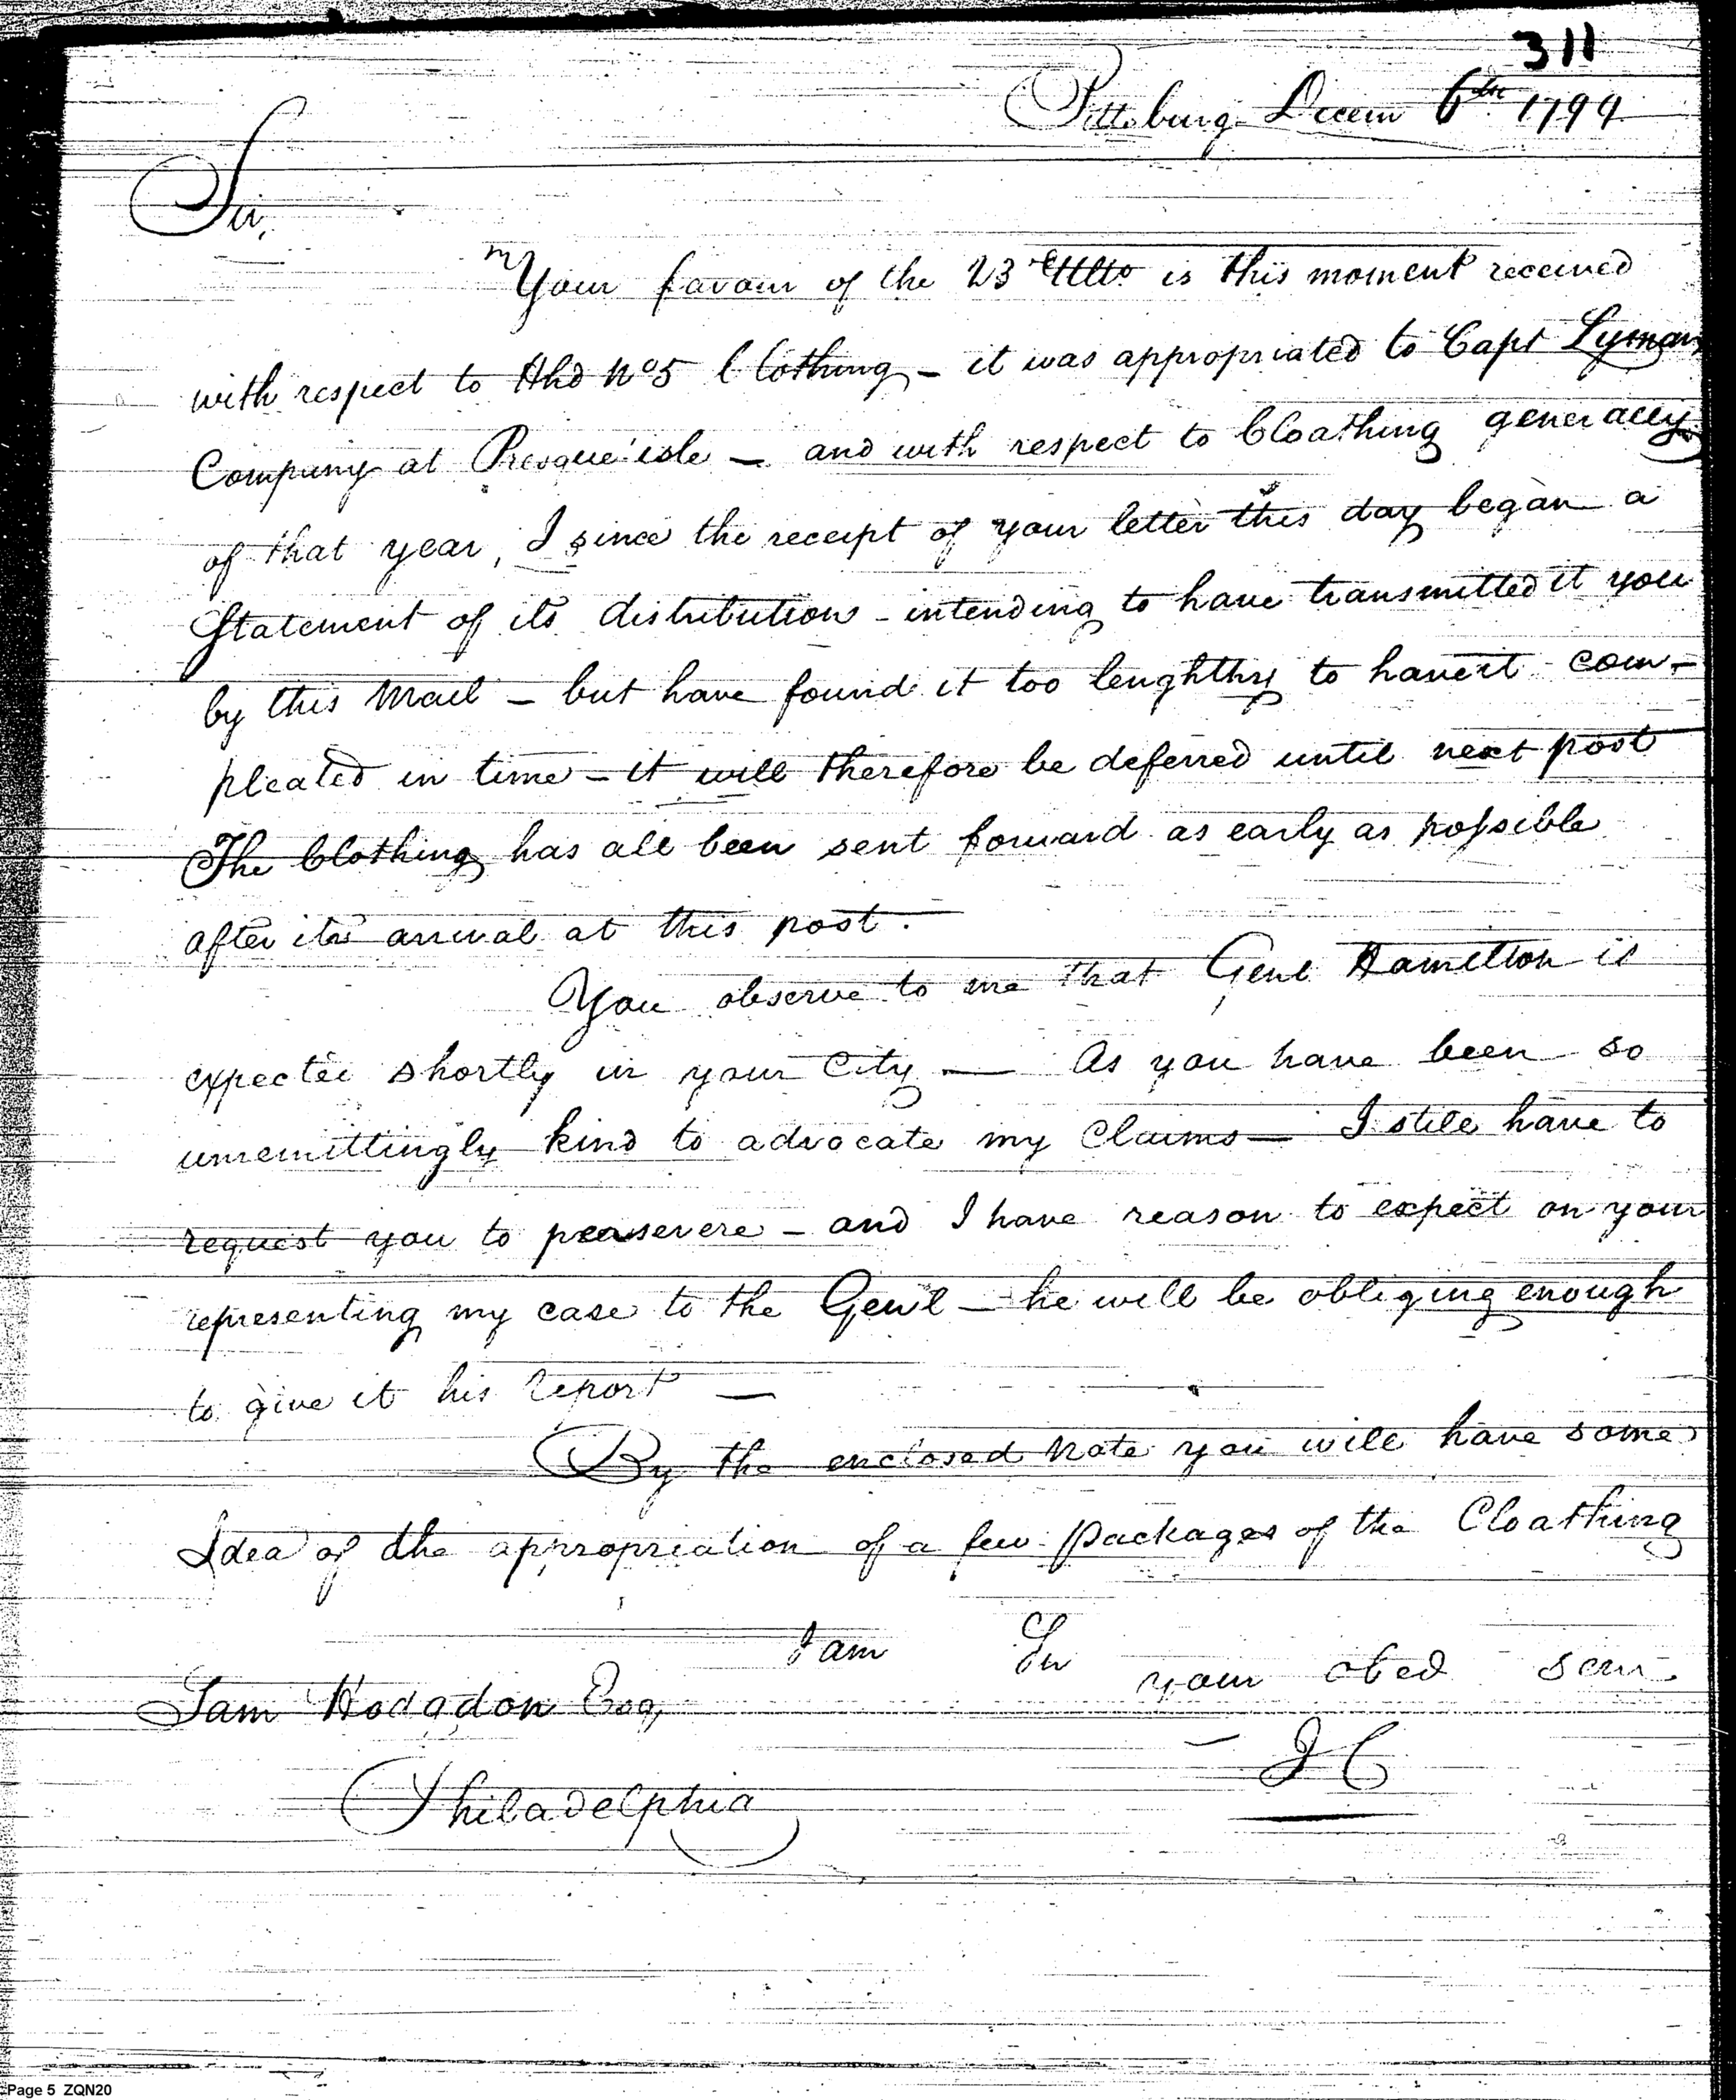 311
Pittsburg Decem 6th 1799
Sir,
Your favour of the 23 Ulto is this moment received
with respect to Hhd No 5 Clothing - it was appropriated to Capt Lyman
Company at Presque'isle - and with respect to Cloathing generally
of that year, I since the receipt of your letter this day began a
Statement of its distribution - intending to have transmitted it you
by this Mail - but have found it too lenghthy to have it com-
pleated in time - it will therefore be deferred until next post
The Clothing has all been sent forward as early as possible
after its arrival at this post.
You observe to me that Genl Hamilton is
expected shortly in your City - As you have been so
unremittingly kind to advocate my Claims - I still have to
request you to peasevere - and I have reason to expect on your
representing my case to the Gen'l - he will be obliging enough
to give it his report -
By the enclosed Note you will have some
Idea of the appropriation of a few Packages of the Cloathing
I am Sir your obed serv.
Sam Hodgdon Esq,
J C
Philadelphia
Page 5 ZQN20